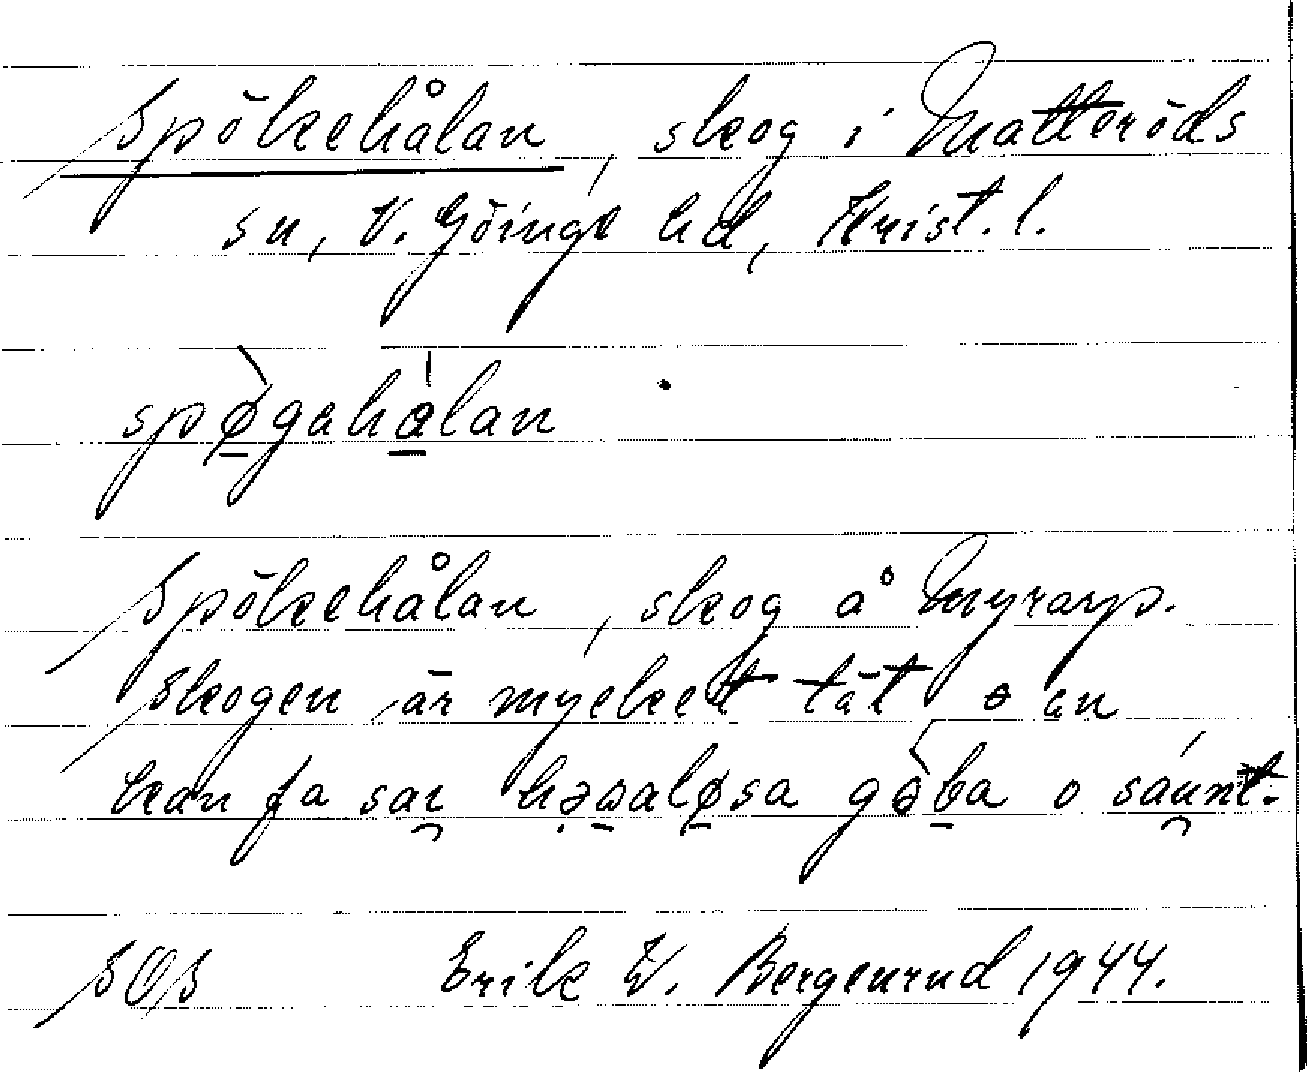 Spökehålan, skog i Matteröds
sn, V. Göinge hd, Krist. l.
spøgahålan
Spökehålan, skog å Myrarp.
Skogen är mycket tät o an
kan fa sar həʋaløsa gəba o sánnt.
SOS Erik W. Bergenrud 1944.